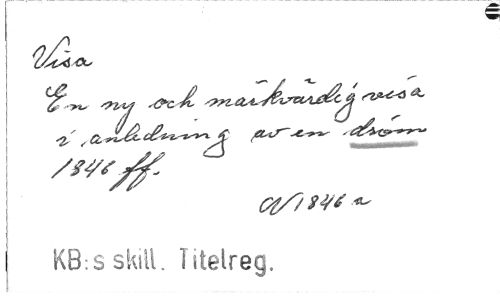 Visa
En ny och märkvärdig visa
i anledning av en dröm
1846 ff.
N 1846 a
KB:s skill. Titelreg.